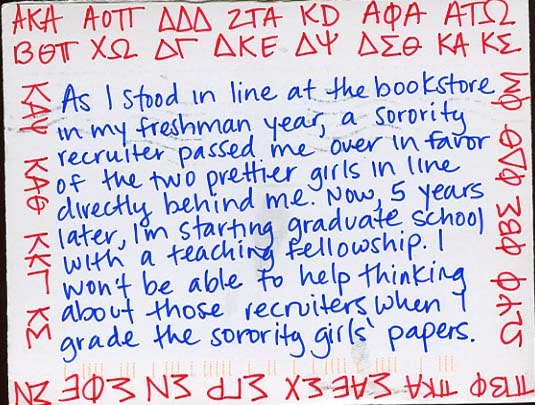 ΑΚΑ ΑΟΠ ΔΔΔ ΖΤΑ KD ΑΦΑ ΑΤΩ
ΒΘΠ ΧΩ ΔΓ ΔΚΕ ΔΨ ΔΣΘ ΚΑ ΚΣ
As I stood in line at the bookstore
in my freshman year, a sorority
recruiter passed me over in favor
of the two prettier girls in line
directly behind me. Now, 5 years
later, I'm starting graduate school
with a teaching fellowship. I
won't be able to help thinking
about those recruiters when I
grade the sorority girls' papers.
ΚΑΨ ΚΑΘ ΚΚΓ ΚΣ
ΠΒΦ ΠΚΑ ΣΑΕ ΣΧ